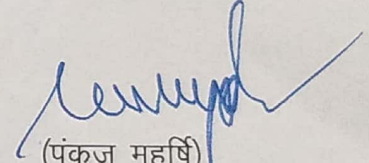 (पंकज महर्षि)